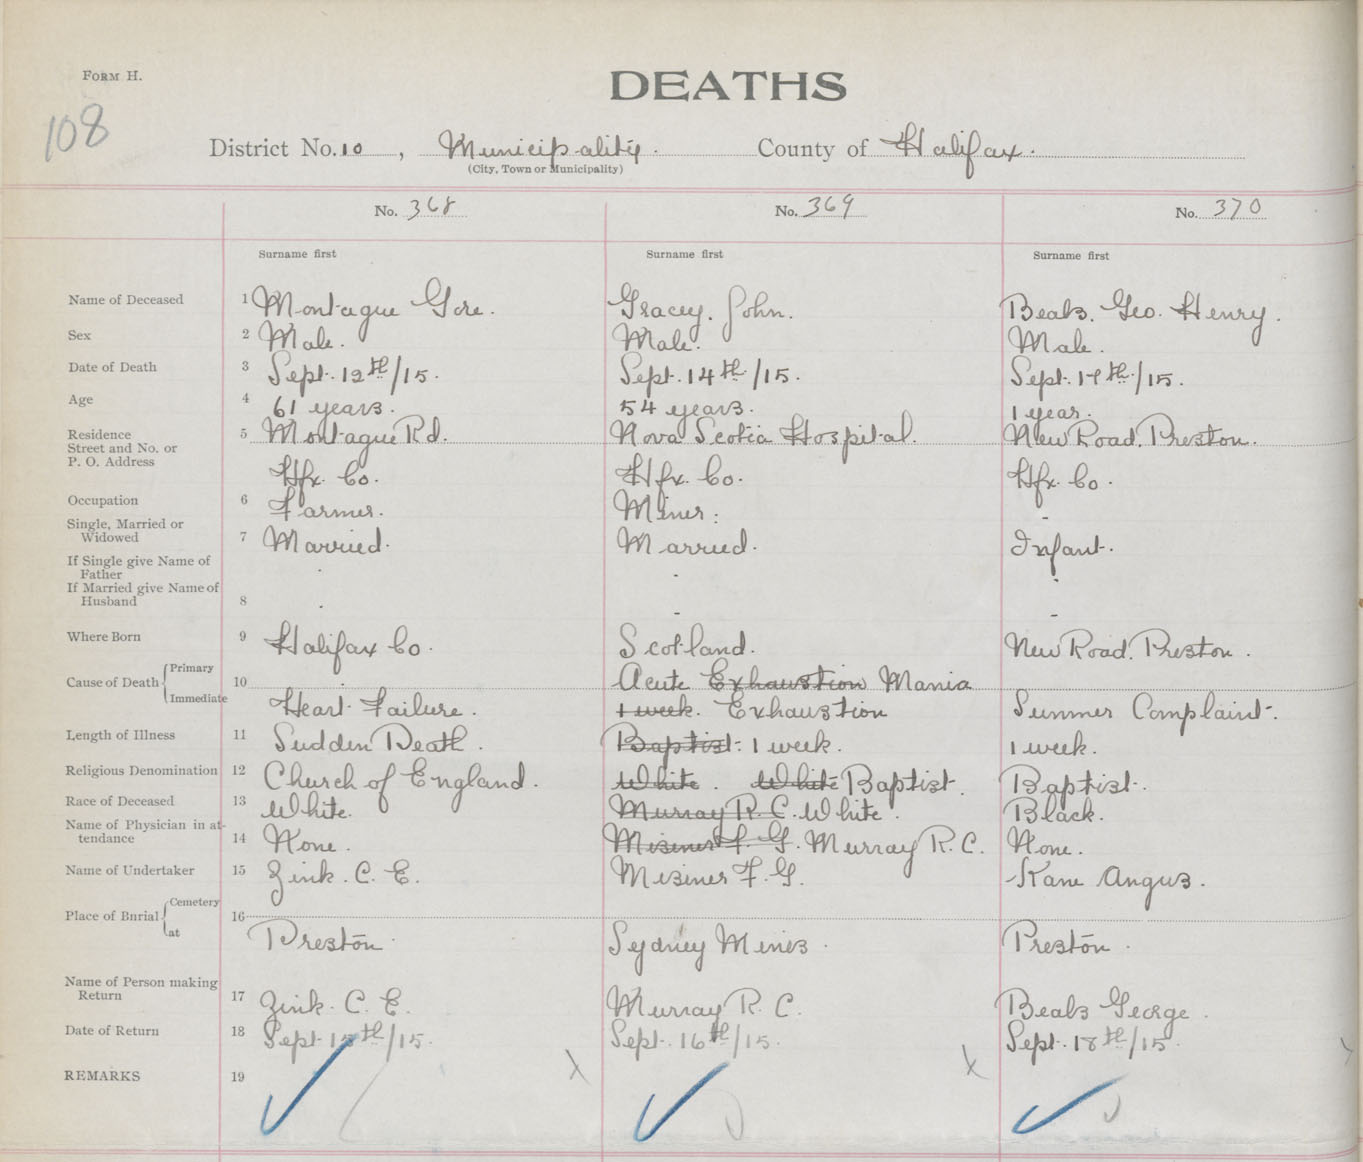 FORM H.
DEATHS
108
District No. 10, Municipality. County of Halifax.
(City, Town or Municipality)
No. 368 No. 369 No. 370
Surname first Surname first Surname first
Name of Deceased 1 Montague Gore. Gracey. John. Beals. Geo. Henry.
Sex 2 Male. Male. Male.
Date of Death 3 Sept. 12th/15. Sept. 14th/15. Sept. 17th/15.
Age 4 61 years. 54 years. 1 year.
Residence 5 Montague Rd. Nova Scotia Hospital. New Road. Preston.
Street and No. or
P. O. Address Hfx. Co. Hfx. Co. Hfx. Co.
Occupation 6 Farmer. Miner. -
Single, Married or
Widowed 7 Married. Married. Infant.
If Single give Name of
Father
If Married give Name of
Husband 8
Where Born 9 Halifax Co. Scotland. New Road. Preston.
Cause of Death { Primary 10 Acute Exhaustion Mania
Immediate Heart Failure. 1 week. Exhaustion Summer Complaint.
Length of Illness 11 Sudden Death. Baptist. 1 week. 1 week.
Religious Denomination 12 Church of England. White. White Baptist. Baptist.
Race of Deceased 13 White. Murray R. C. White. Black.
Name of Physician in at-
tendance 14 None. Misener F. G. Murray R. C. None.
Name of Undertaker 15 Zink. C. E. Misener F. G. Kane Angus.
Place of Burial { Cemetery 16
at Preston. Sydney Mines. Preston.
Name of Person making
Return 17 Zink. C. E. Murray R. C. Beals George.
Date of Return 18 Sept. 15th/15. Sept. 16th/15. Sept. 18th/15.
REMARKS 19